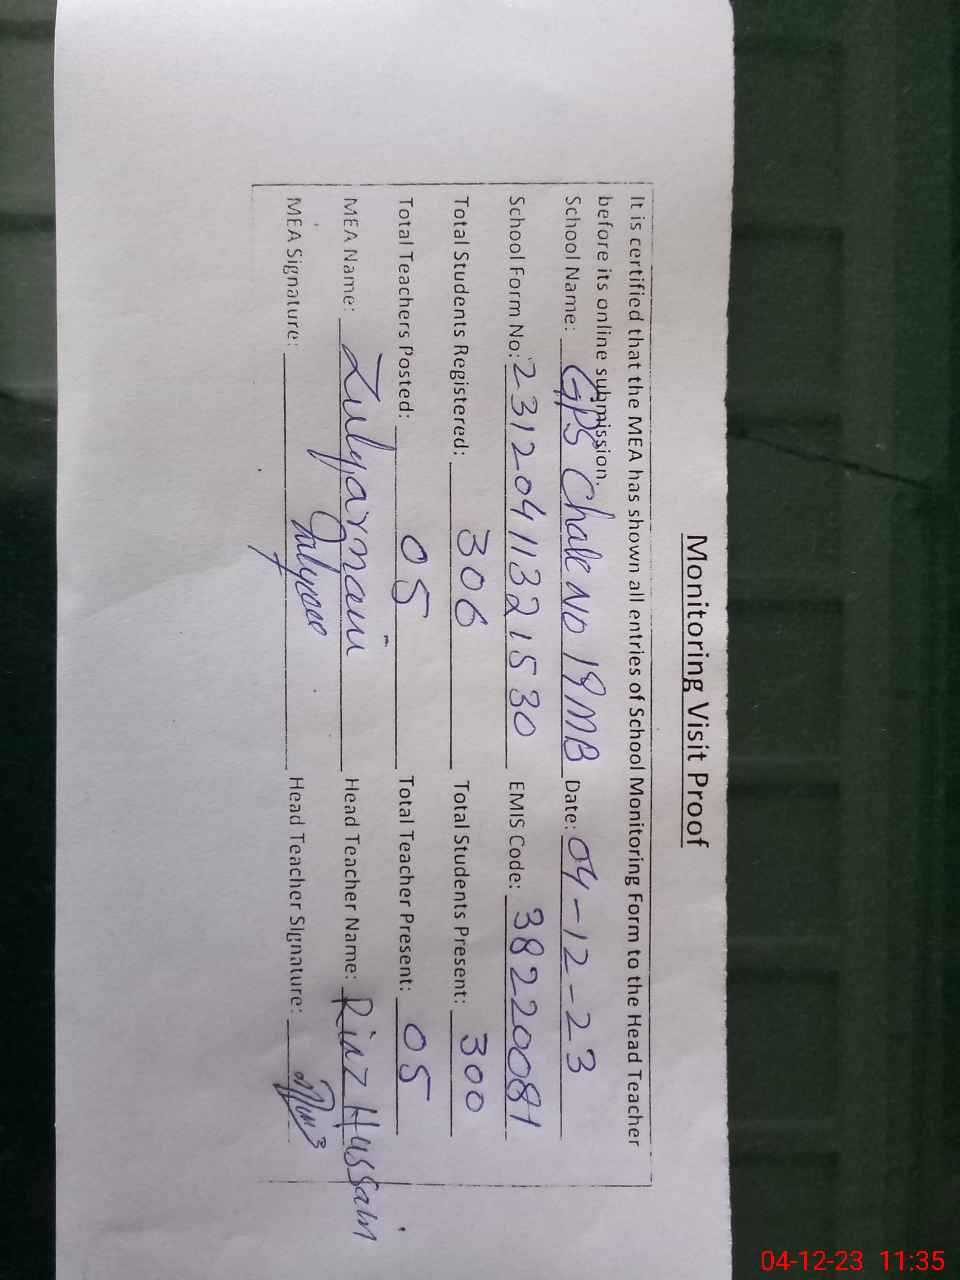 Monitoring Visit Proof
It is certified that the MEA has shown all entries of School Monitoring Form to the Head Teacher
before its online submission.
School Name: GPS Chak No 19 MB Date: 04-12-23
School Form No: 2312041132 1530 EMIS Code: 38220081
Total Students Registered: 306 Total Students Present: 300
Total Teachers Posted: 05 Total Teacher Present: 05
MEA Name: Zulqarnain Head Teacher Name: Riaz Hussain
MEA Signature: Head Teacher Signature:
04-12-23 11:35